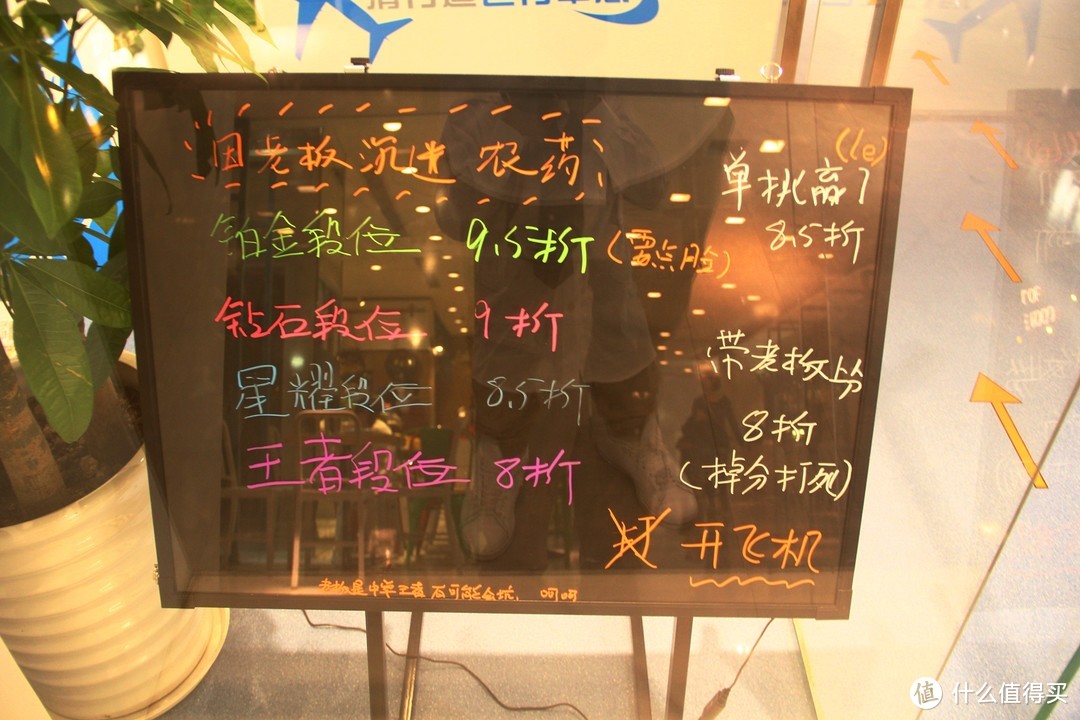 因老板沉迷 农药
铂金段位 9.5折 (要点脸)
钻石段位 9折
星耀段位 8.5折
王者段位 8折
(le)
单挑赢了
8.5折
带老板上分
8折
(掉分打死)
开飞机
老板是中单王者 有可能会坑, 呵呵
值 什么值得买